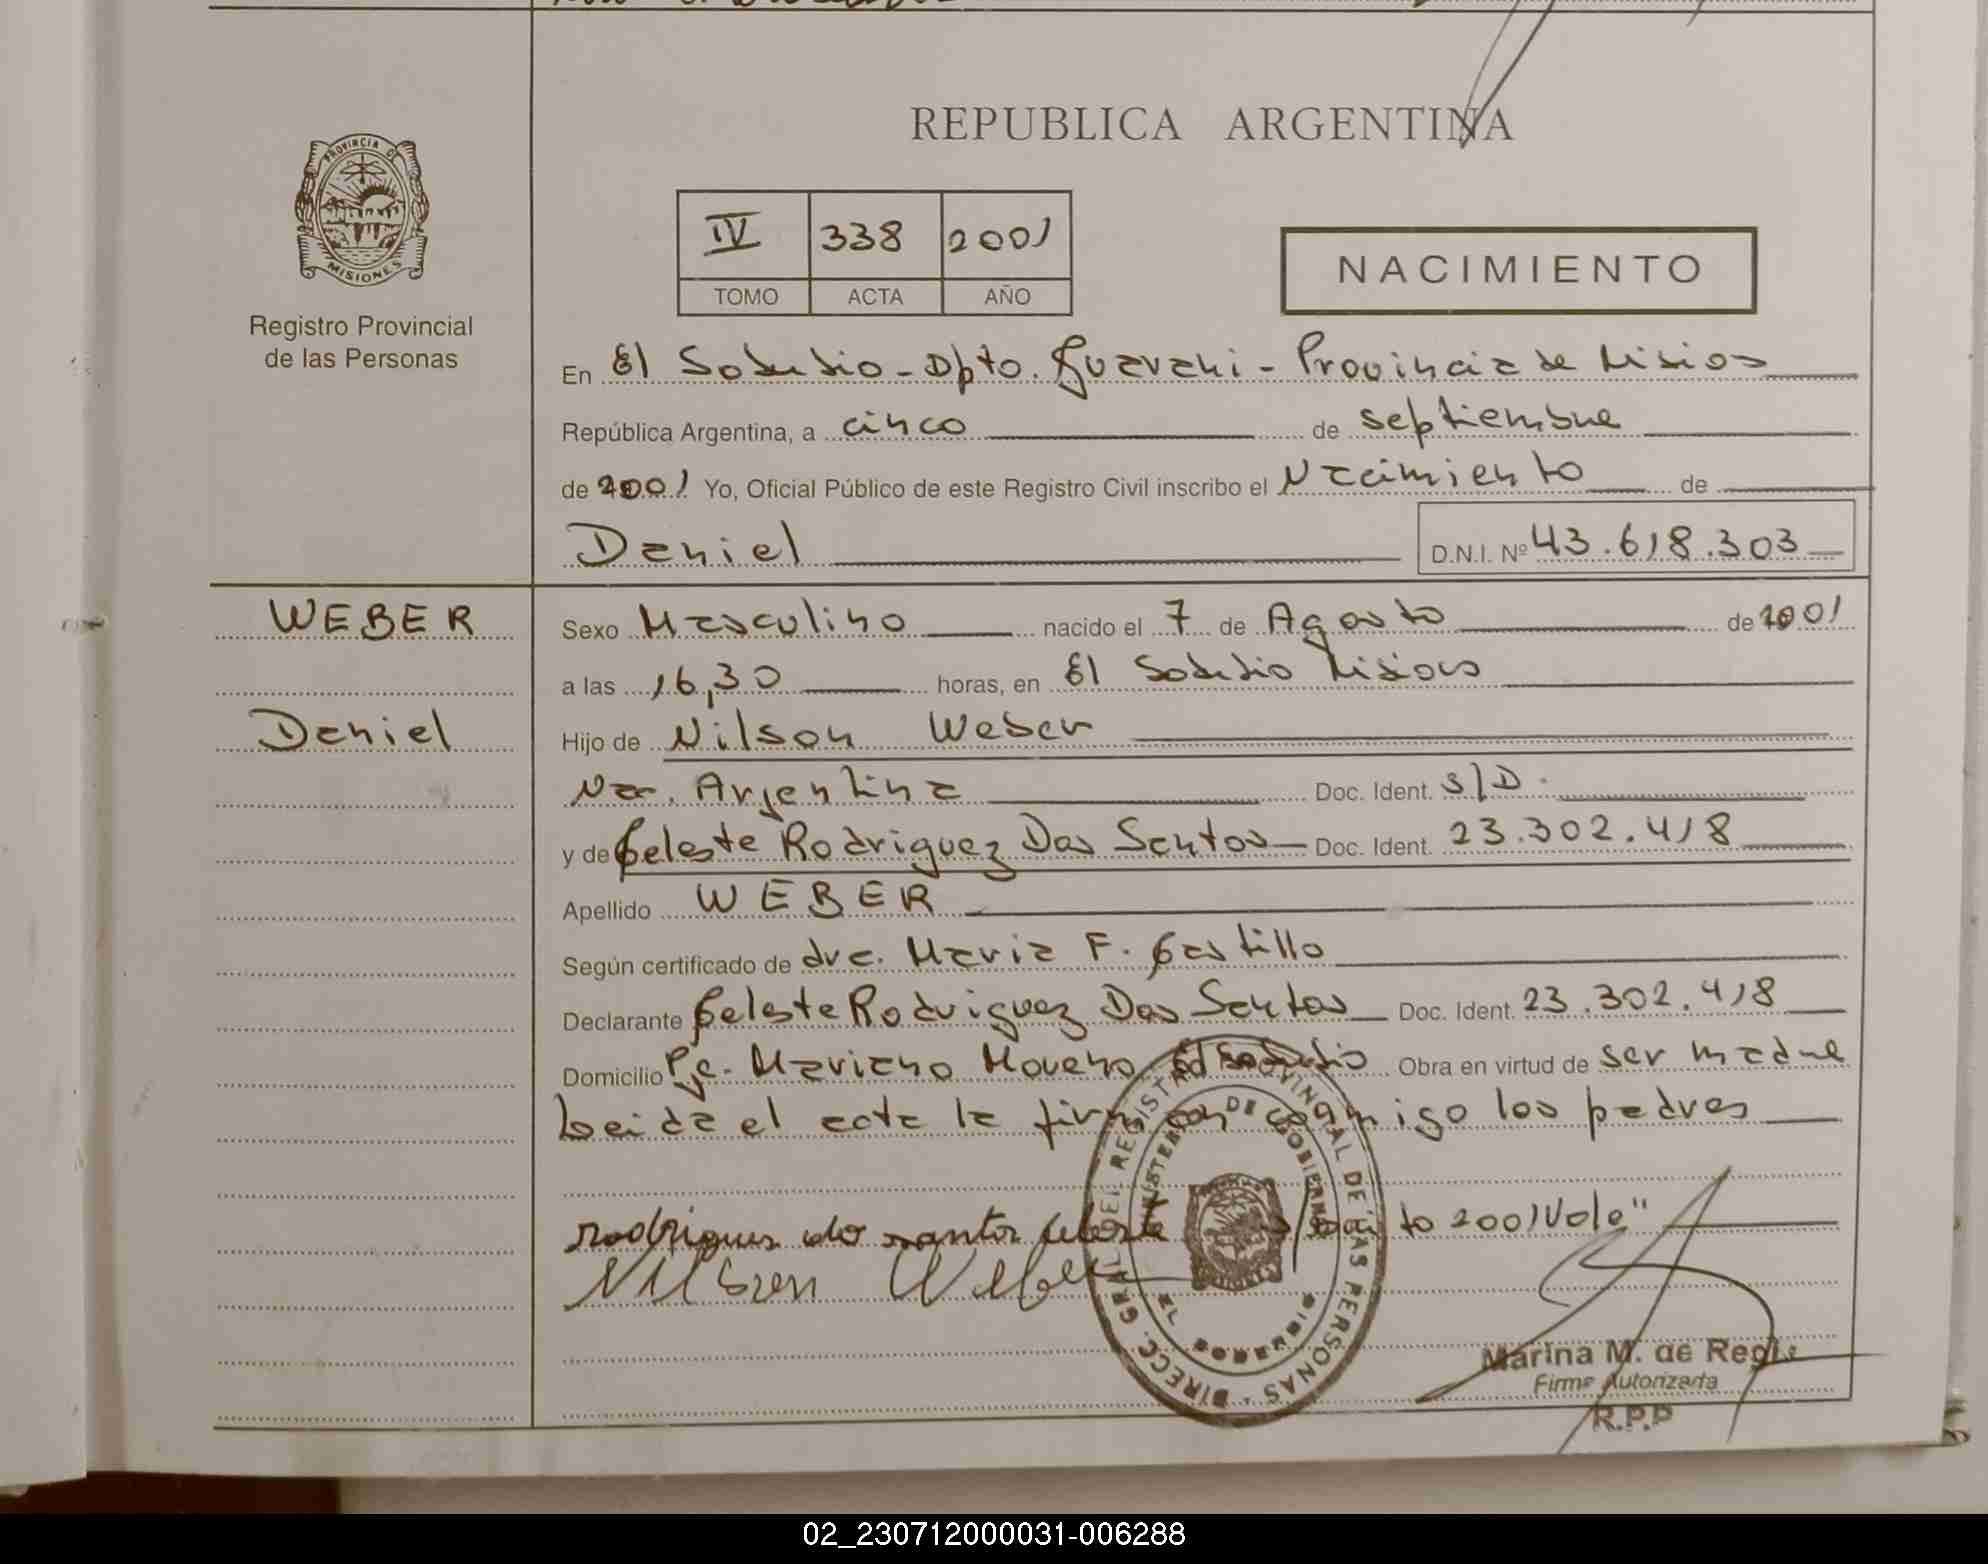 REPUBLICA ARGENTINA
PROVINCIA DE
MISIONES
Registro Provincial
de las Personas
IV 338 2001
TOMO ACTA AÑO
NACIMIENTO
En El Soberbio - Dpto. Guarani - Provincia de Misiones
República Argentina, a cinco de septiembre
de 2001 Yo, Oficial Público de este Registro Civil inscribo el Nacimiento de
Daniel D.N.I. Nº 43.618.303
WEBER
Daniel
Sexo Masculino nacido el 7 de Agosto de 2001
a las 16,30 horas, en El Soberbio Misiones
Hijo de Nilson Weber
Na. Argentina Doc. Ident. S/D.
y de Celeste Rodriguez Dos Santos Doc. Ident. 23.302.418
Apellido WEBER
Según certificado de dra. Maria F. Castillo
Declarante Celeste Rodriguez Dos Santos Doc. Ident. 23.302.418
Domicilio Pje. Mariano Moreno El Soberbio Obra en virtud de ser madre
Leida el acta la firman conmigo los padres
rodrigues do santos celeste 2001 Vale"
Nilson Weber
DIRECC. GRAL. DEL REGISTRO PROVINCIAL DE LAS PERSONAS
MINISTERIO DE GOBIERNO
EL SOBERBIO
Marina M. de Regis
Firma Autorizada
R.P.P
02_230712000031-006288